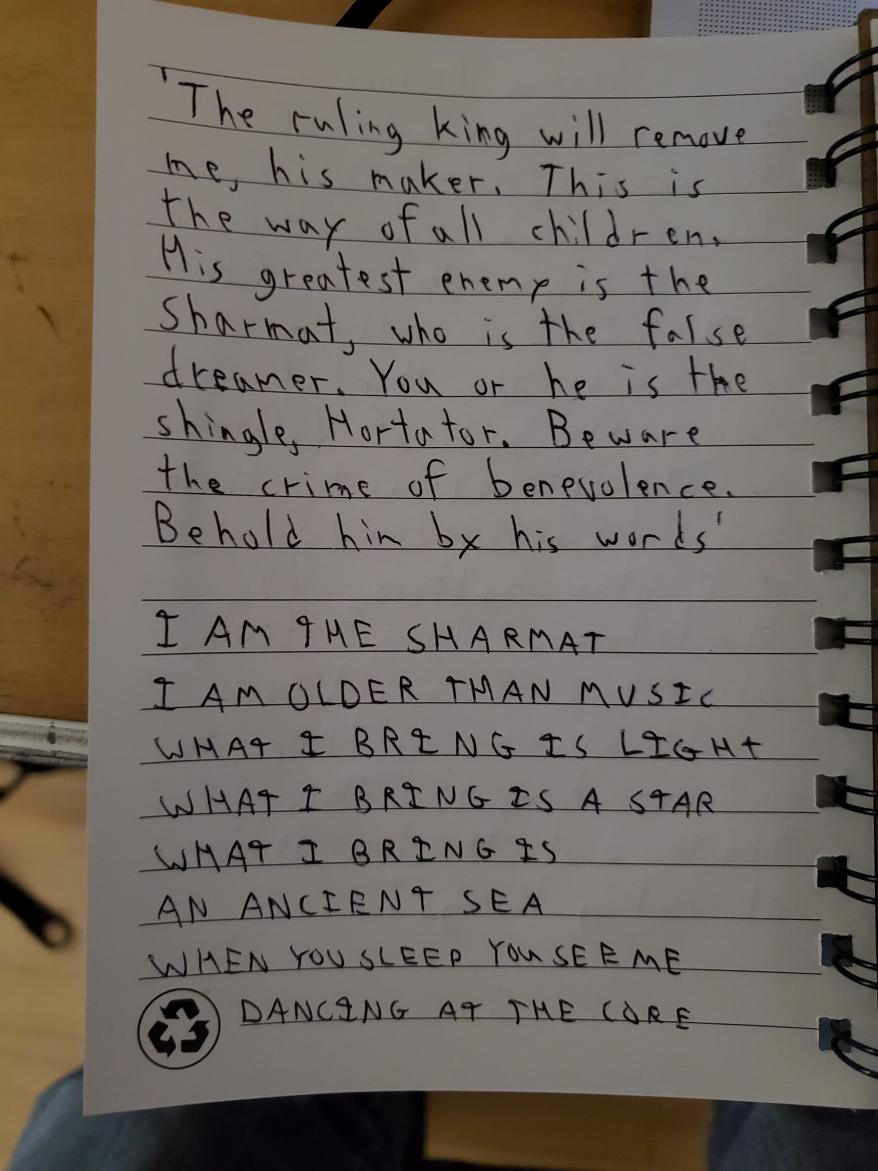 'The ruling king will remove
me, his maker. This is
the way of all children.
His greatest enemy is the
Sharmat, who is the false
dreamer. You or he is the
shingle, Hortator. Beware
the crime of benevolence.
Behold hin by his words'
I AM THE SHARMAT
I AM OLDER THAN MUSIC
WHAT I BRING IS LIGHT
WHAT I BRING IS A STAR
WHAT I BRING IS
AN ANCIENT SEA
WHEN YOU SLEEP YOU SEE ME
DANCING AT THE CORE